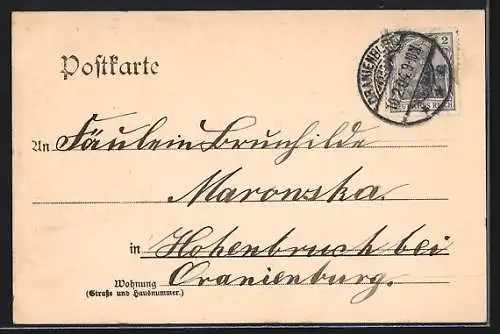 Postkarte
ORANIENBURG
2
An Fräulein Brunhilde
Marowska.
in Hohenbruch bei
Oranienburg.
Wohnung
(Straße und Hausnummer.)